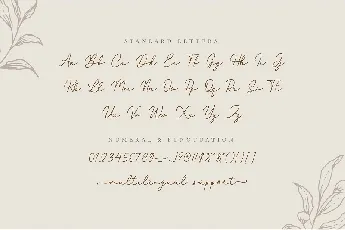 STANDARD LETTERS
Aa Bb Cc Dd Ee Ff Gg Hh Ii Jj
Kk Ll Mm Nn Oo Pp Qq Rr Ss Tt
Uu Vv Ww Xx Yy Zz
NUMERAL & PUNCTUATION
multilingual support